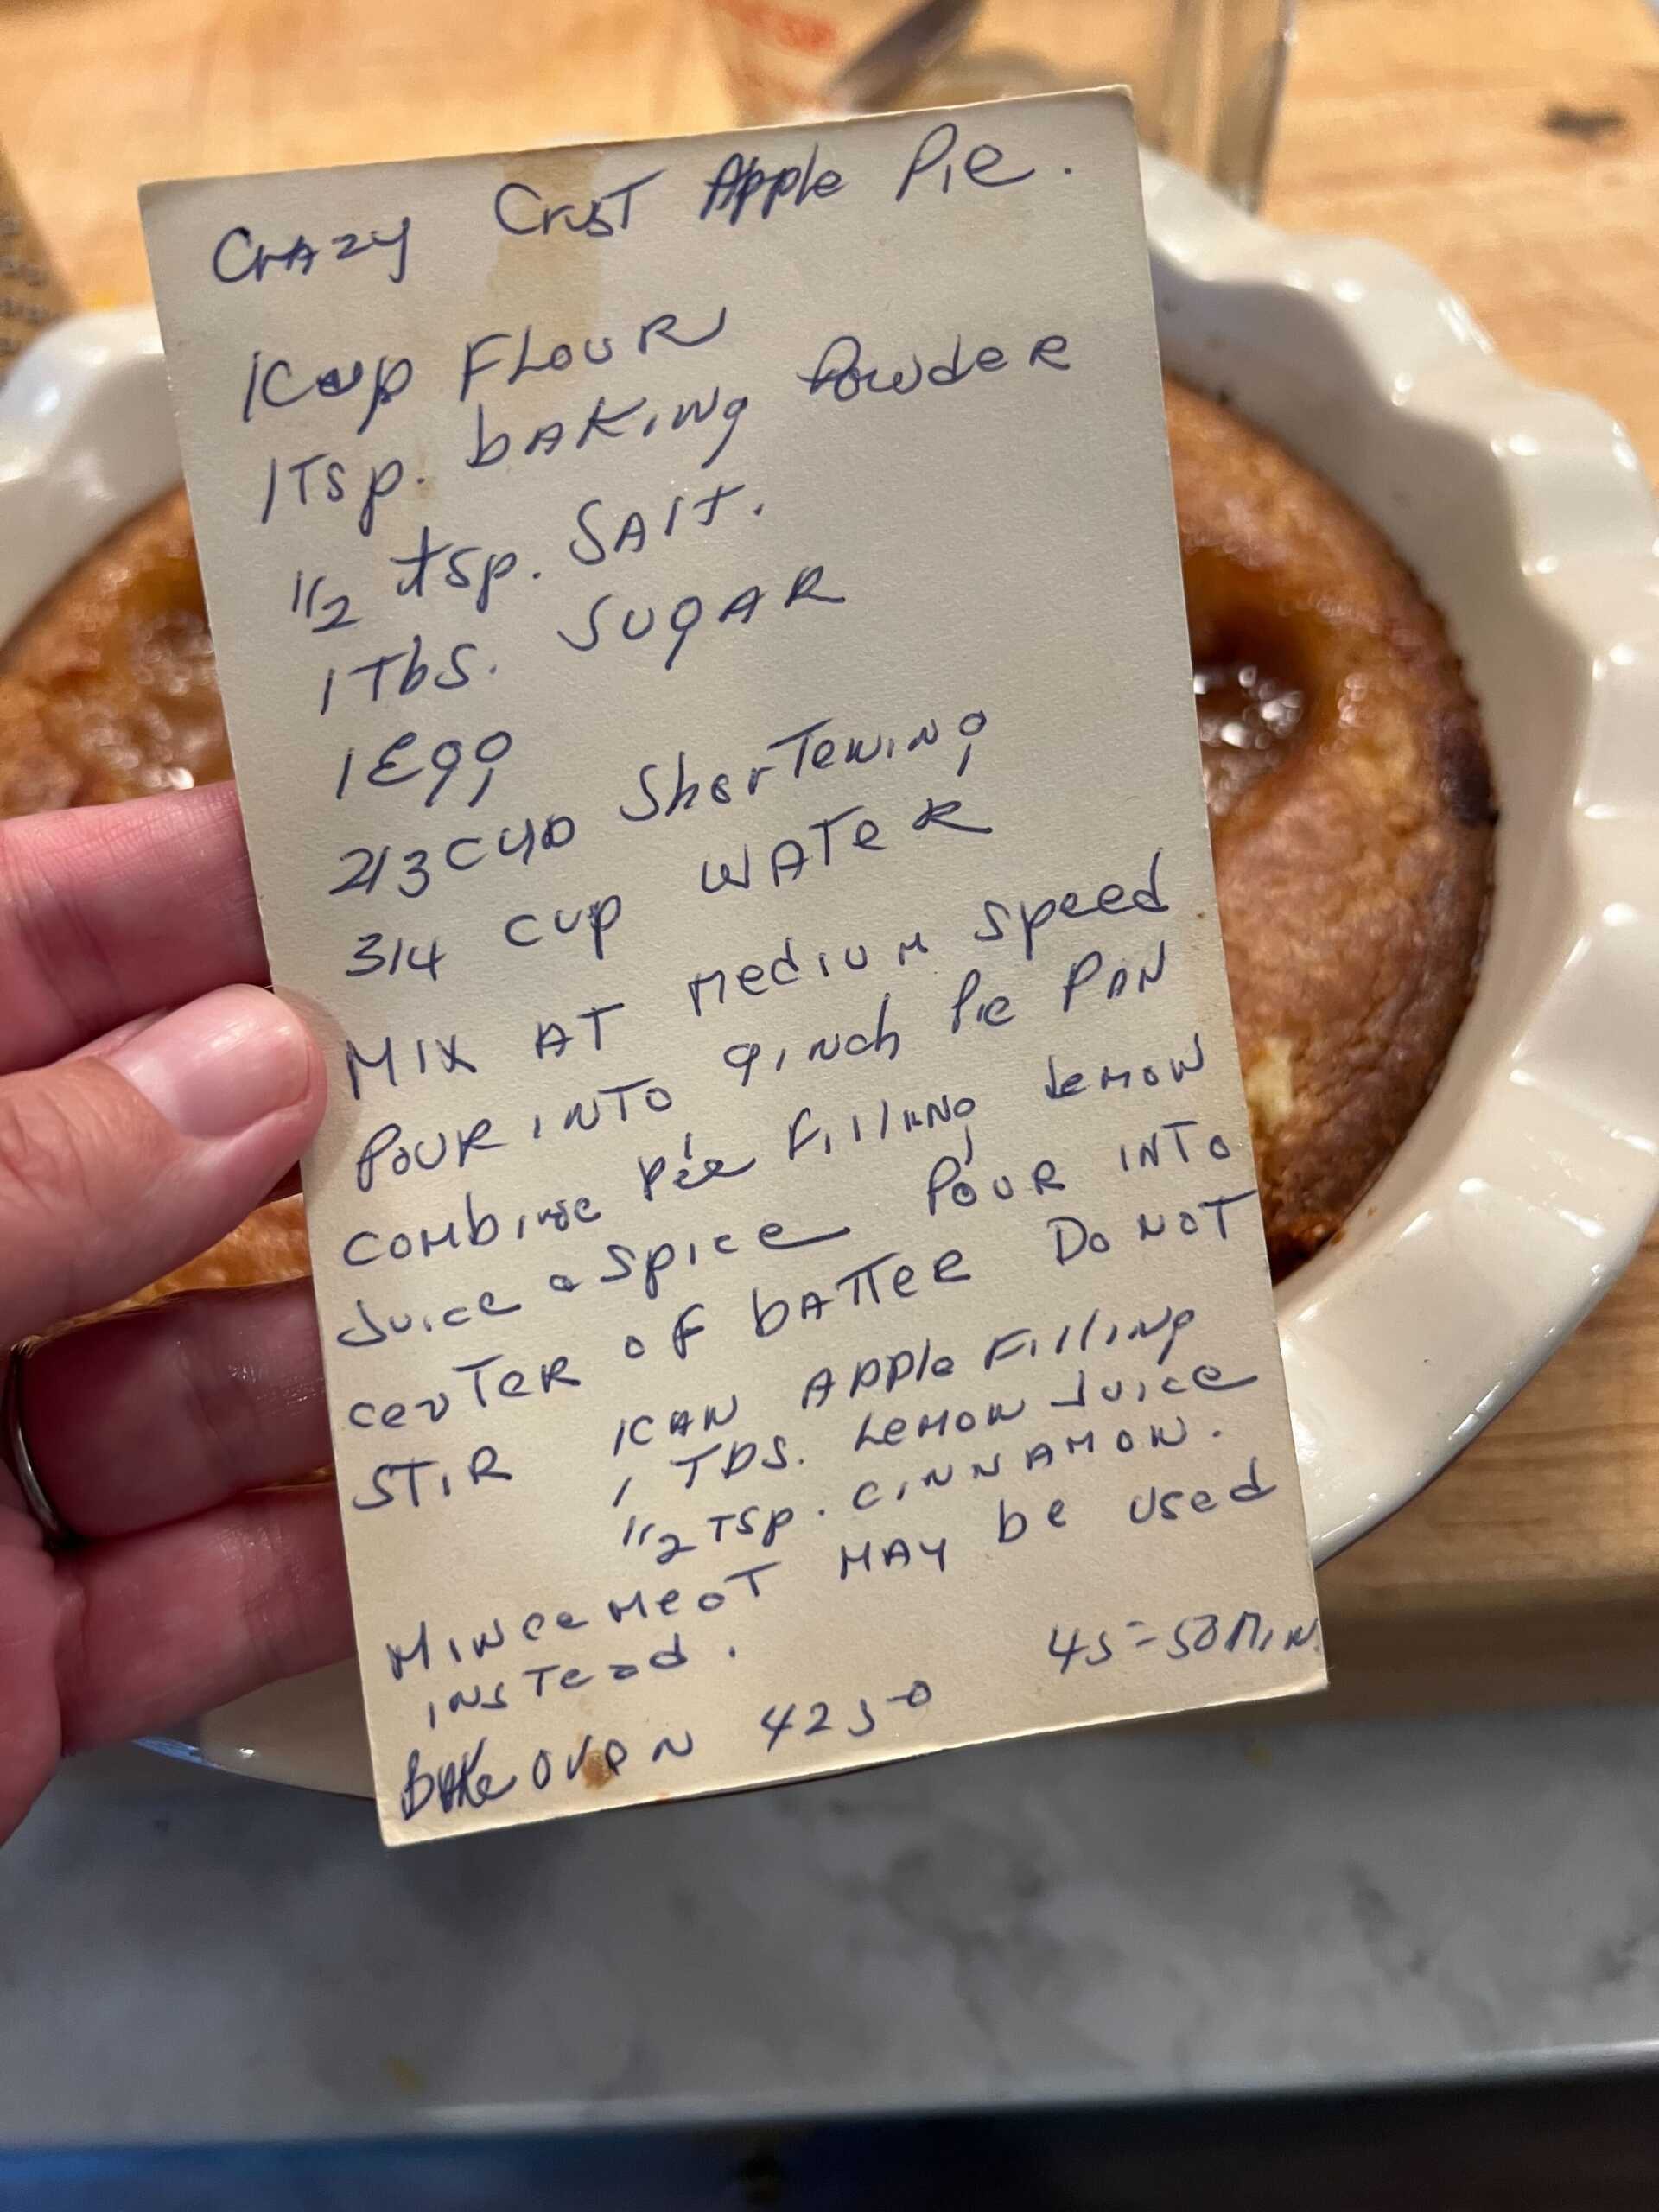 Crazy Crust Apple Pie.
1 Cup Flour
1 Tsp. baking Powder
1/2 tsp. Salt.
1 Tbs. Sugar
1 Egg
2/3 cup Shortening
3/4 cup water
Mix at medium speed
Pour into 9 inch Pie Pan
combine Pie Filling Lemon
Juice & spice Pour into
center of batter Do not
stir 1 can Apple Filling
1 Tbs. Lemon Juice
1/2 Tsp. cinnamon.
Mincemeat may be used
instead.
45-50 Min.
Bake oven 425°